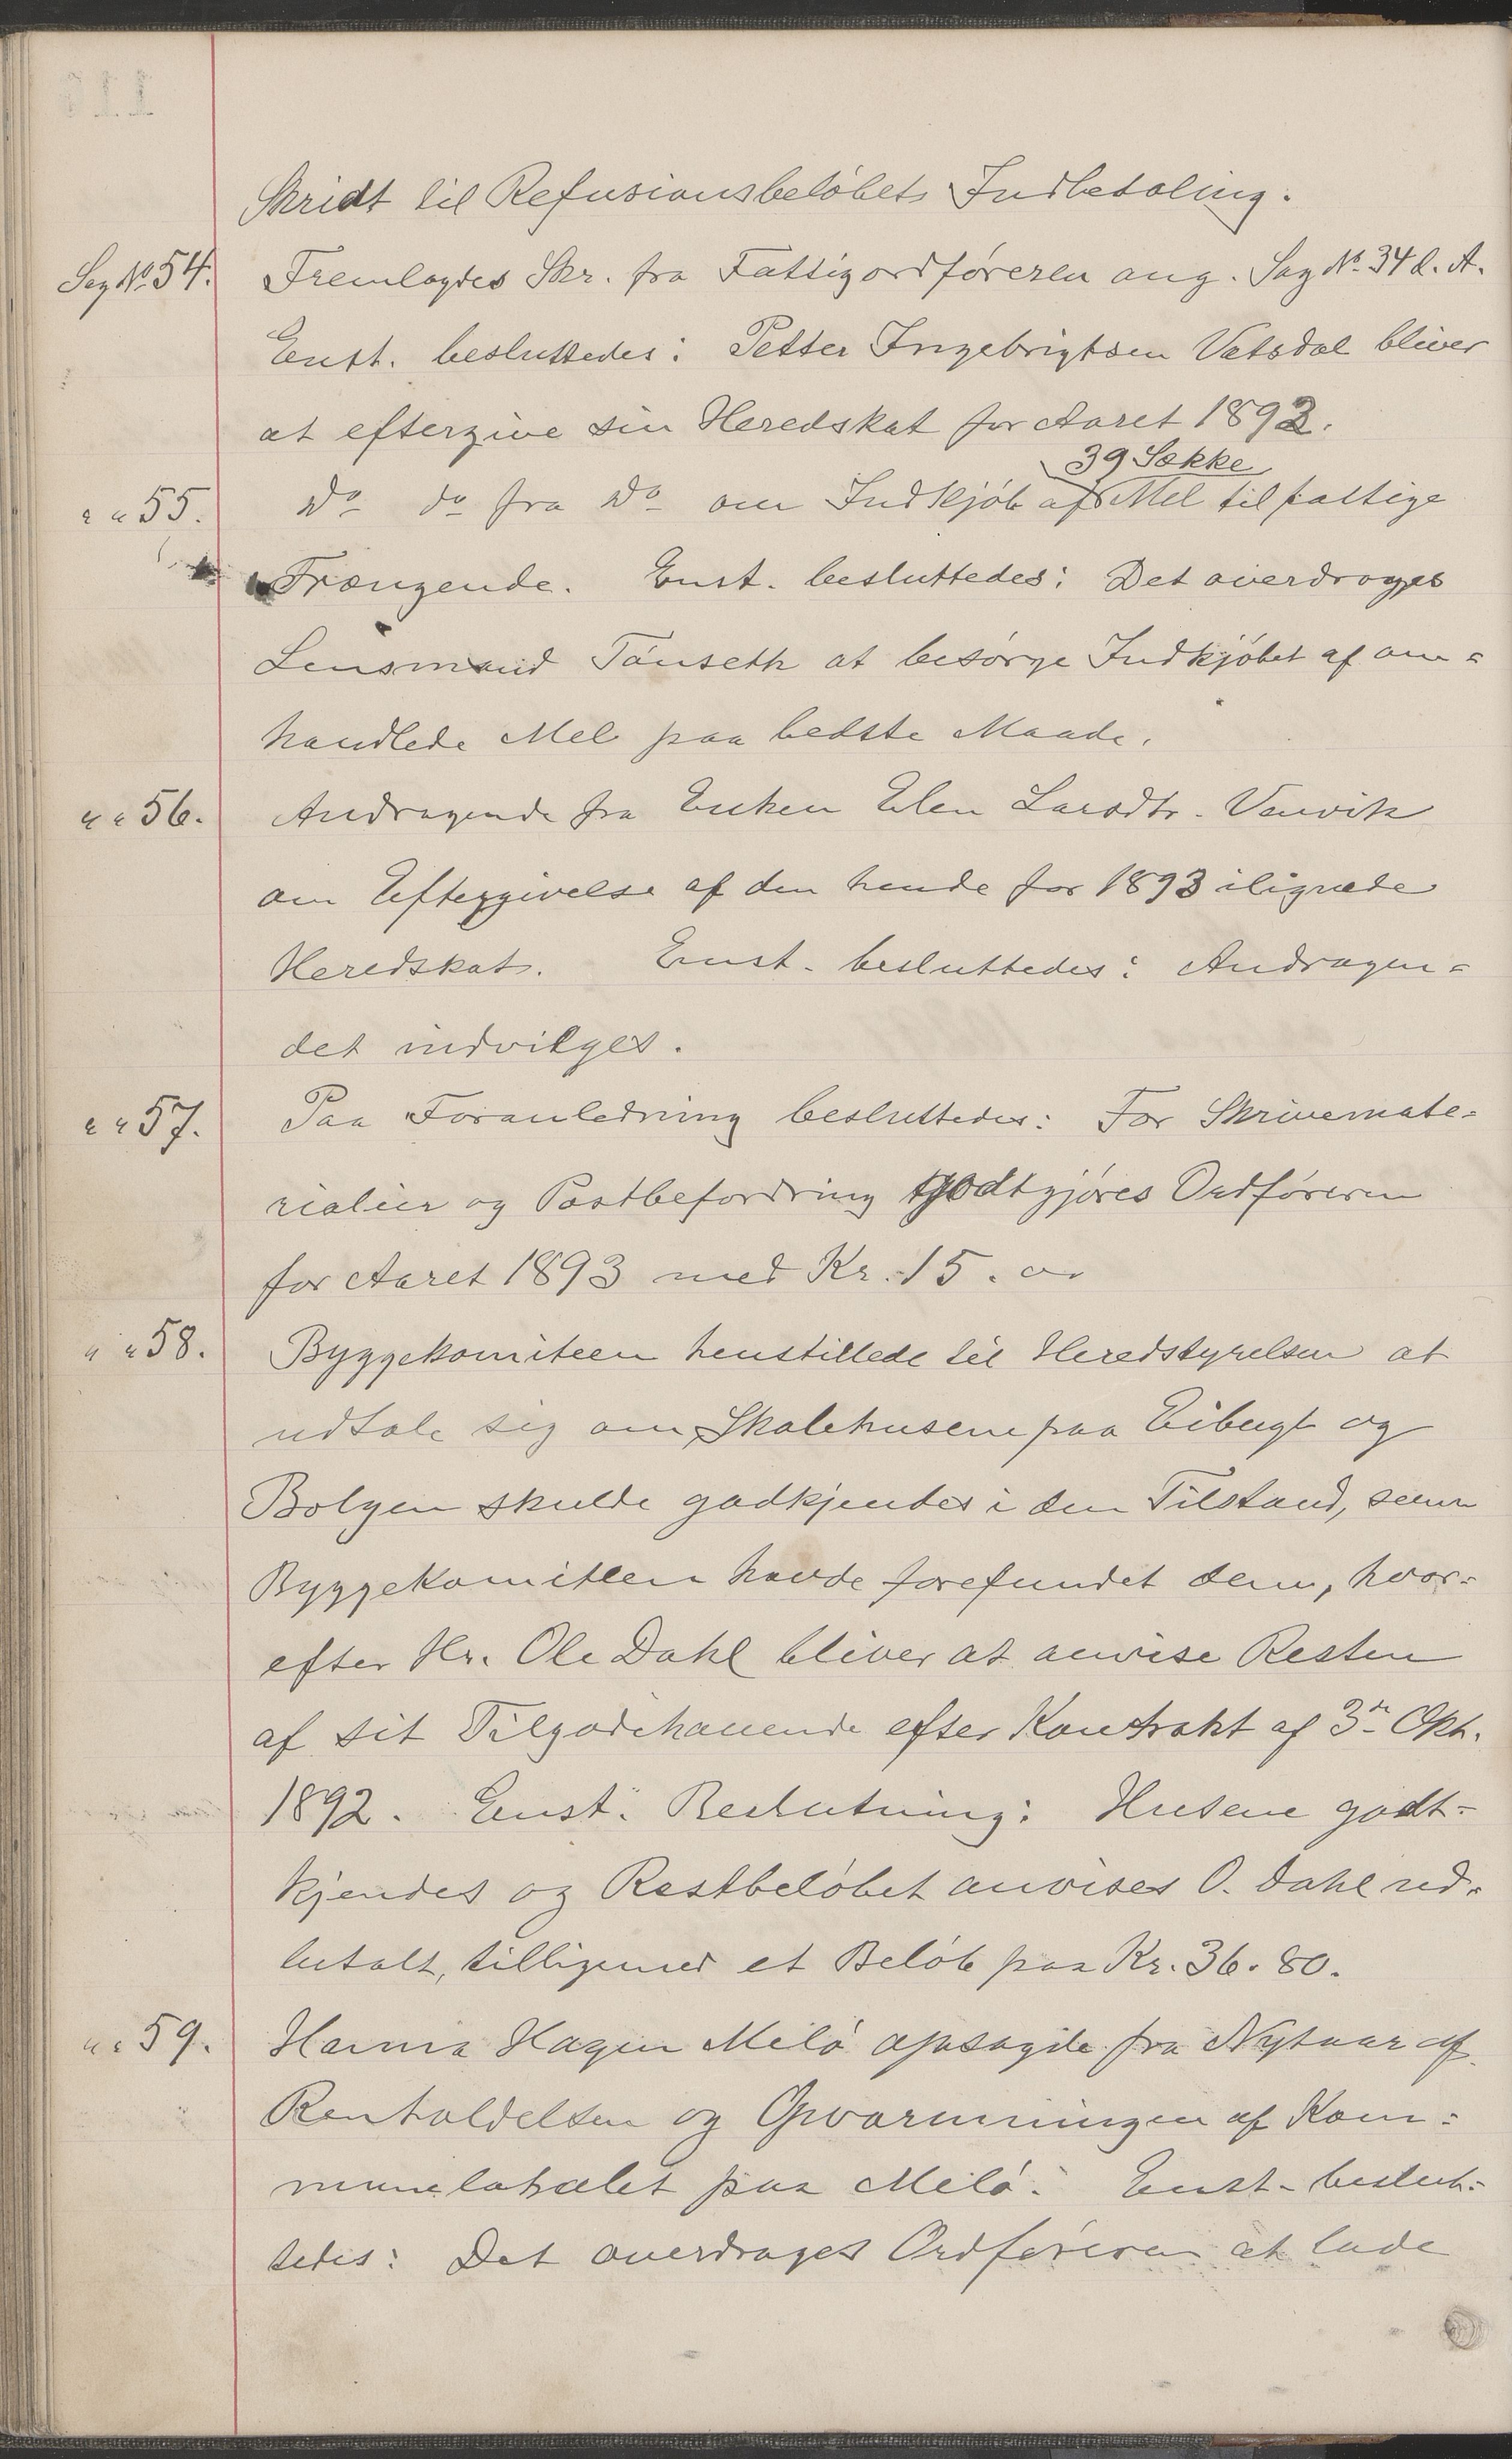 Skridt til Refusionsbeløbets Indbetaling.
Sag No 54. Fremlagdes Skr. fra Fattigordføreren ang. Sag No 34 d. A.
Enst. besluttedes: Petter Ingebrigtsen Vatsdal bliver
at eftergive sin Heredskat for Aaret 1893.
39 Sække
" " 55. Do do fra Do om Indkjøb af Mel til fattige
Trængende. Enst. besluttedes: Det overdrages
Lensmand Tønseth at besørge Indkjøbet af om=
handlede Mel paa bedste Maade.
" " 56. Andragende fra Enken Elen Larsdtr. Venvik
om Eftergivelse af den hende for 1893 ilignede
Heredskat. Enst. besluttedes: Andragen=
det indvilges.
" " 57. Paa Foranledning besluttedes: For Skrivemate=
rialier og Postbefordring godtgjøres Ordføreren
for Aaret 1893 med Kr. 15.00
" " 58. Byggekomiteen henstillede til Heredstyrelsen at
udtale sig om Skolehusene paa Eibugt og
Bolgen skulde godkjendes i den Tilstand, som
Byggekomiteen havde forefundet dem, hvor=
efter Hr. Ole Dahl bliver at anvise Resten
af sit Tilgodehavende efter Kontrakt af 3die Okt.
1892. Enst. Beslutning: Husene godt=
kjendes og Restbeløbet anvises O. Dahl ud=
betalt, tilligemed et Beløb paa Kr. 36.80.
" " 59. Hanna Hagen Melø opsagde fra Nytaar af
Renholdelsen og Opvarmningen af Kom=
munelokalet paa Melø. Enst. beslut=
tedes: Det overdrages Ordføreren at lade